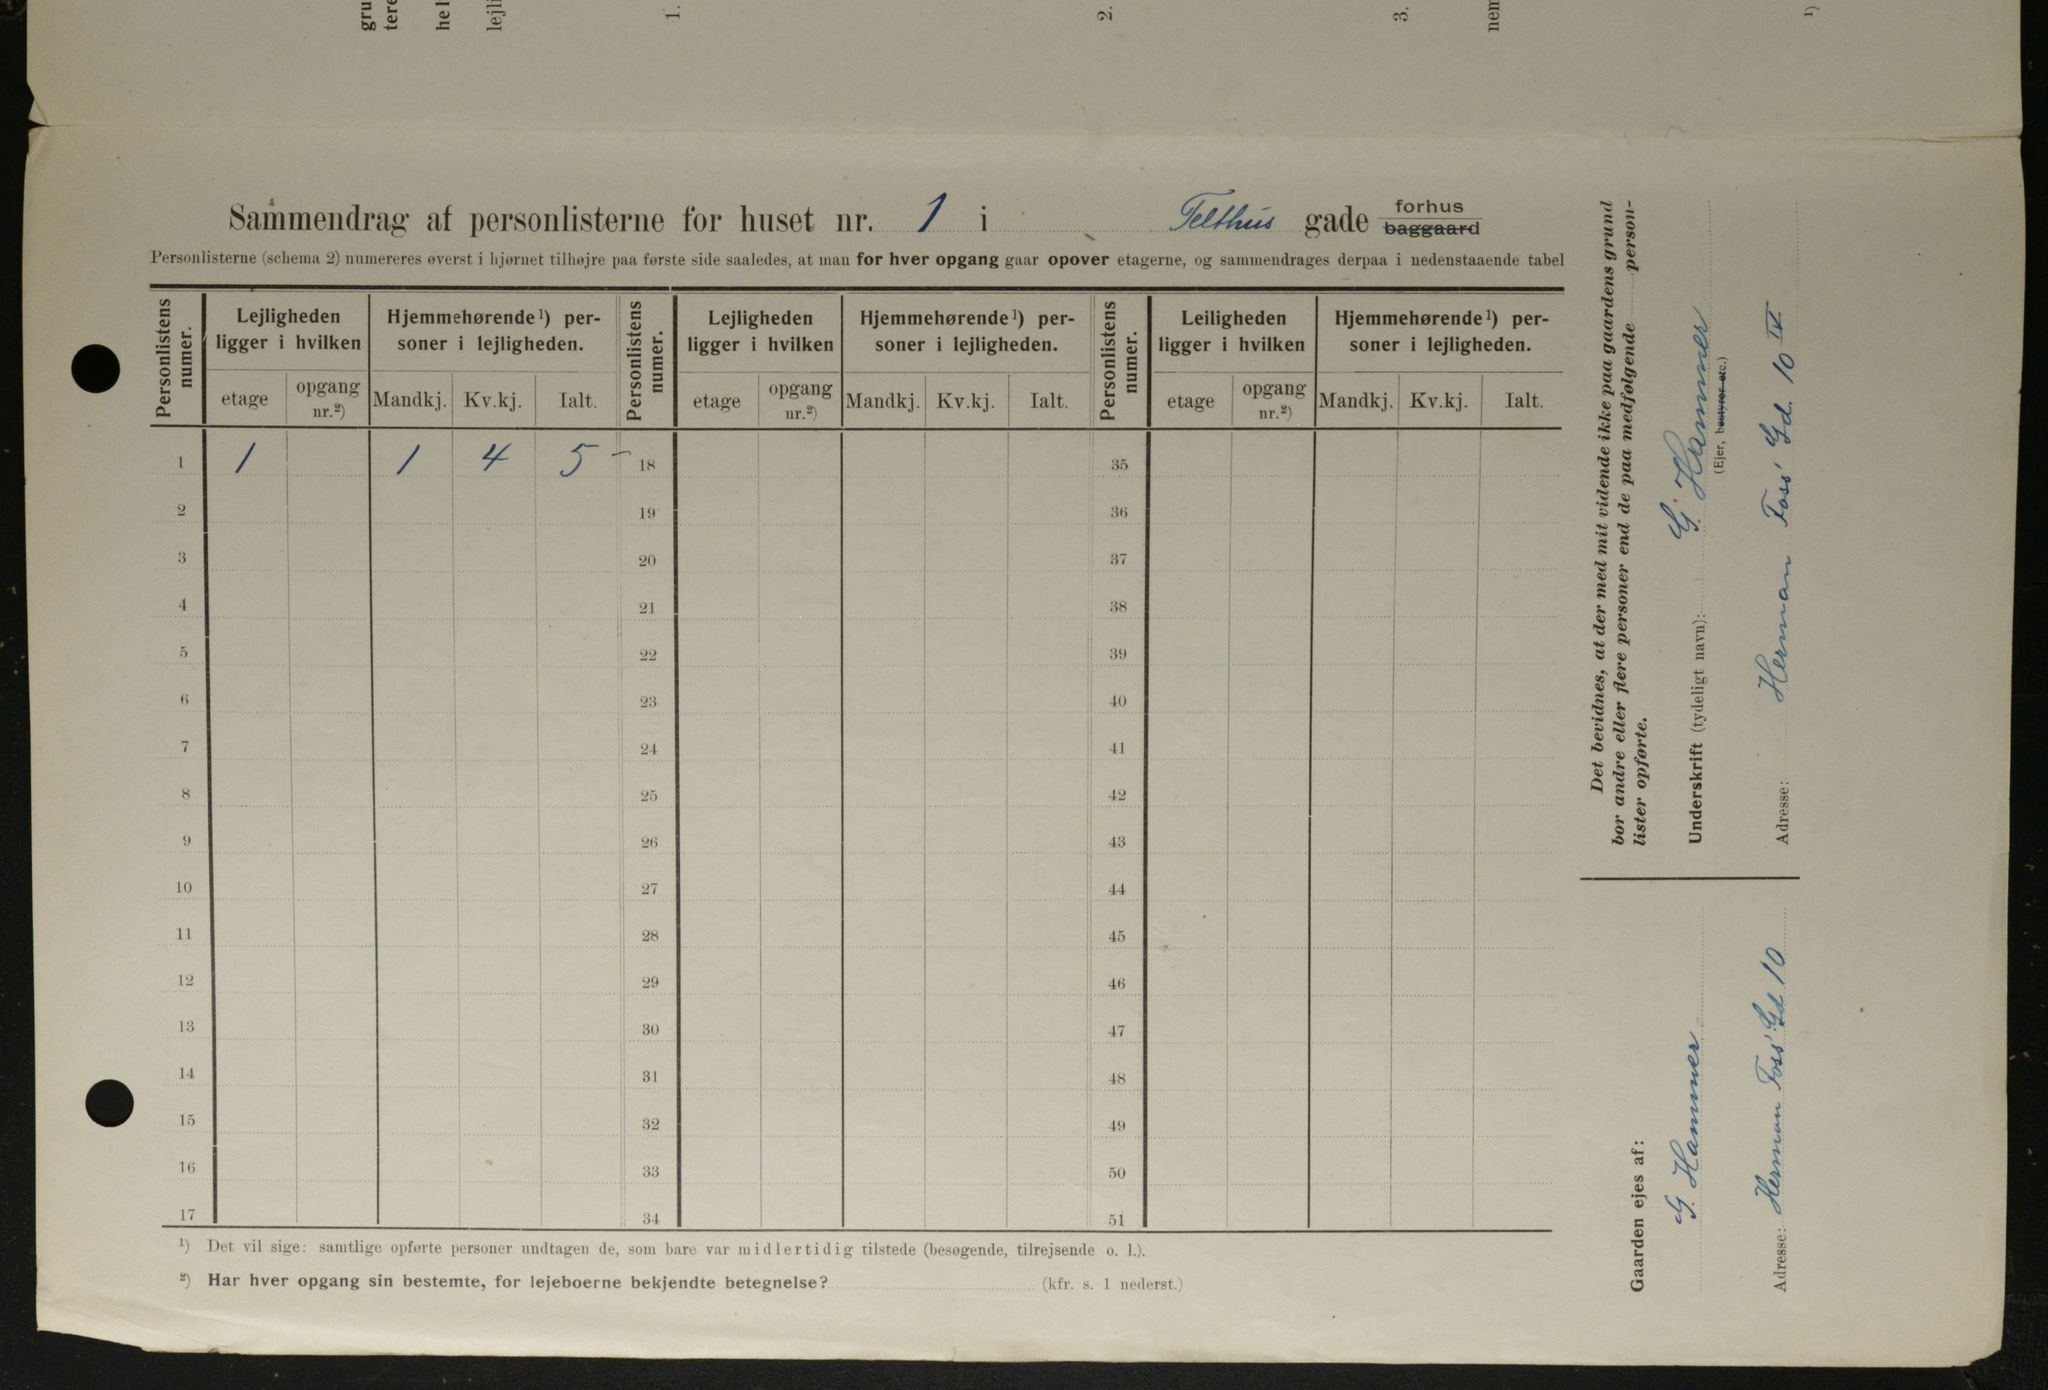 gru
tere
hel
lejli
1.
2.
3.
nem
1)
Sammendrag af personlisterne for huset nr. 1 i Telthus gade forhus baggaard
Personlisterne (schema 2) numereres øverst i hjørnet tilhøjre paa første side saaledes, at man for hver opgang gaar opover etagerne, og sammendrages derpaa i nedenstaaende tabel
Personlistens numer.
Lejligheden ligger i hvilken
etage
opgang nr.²)
Hjemmehørende¹) personer i lejligheden.
Mandkj.
Kv.kj.
Ialt.
Personlistens numer.
Lejligheden ligger i hvilken
etage
opgang nr.²)
Hjemmehørende¹) personer i lejligheden.
Mandkj.
Kv.kj.
Ialt.
Personlistens numer.
Leiligheden ligger i hvilken
etage
opgang nr.²)
Hjemmehørende¹) personer i lejligheden.
Mandkj.
Kv.kj.
Ialt.
1 1 1 4 5 – 18 35
2 19 36
3 20 37
4 21 38
5 22 39
6 23 40
7 24 41
8 25 42
9 26 43
10 27 44
11 28 45
12 29 46
13 30 47
14 31 48
15 32 49
16 33 50
17 34 51
¹) Det vil sige: samtlige opførte personer undtagen de, som bare var midlertidig tilstede (besøgende, tilrejsende o. l.).
²) Har hver opgang sin bestemte, for lejeboerne bekjendte betegnelse? (kfr. s. 1 nederst.)
Det bevidnes, at der med mit vidende ikke paa gaardens grund
bor andre eller flere personer end de paa medfølgende person-
lister opførte.
Underskrift (tydeligt navn): G. Hammer
(Ejer, bestyrer etc.)
Adresse: Herman Foss' Gd. 10 IV
Gaarden ejes af:
G. Hammer
Adresse: Herman Foss' Gd. 10